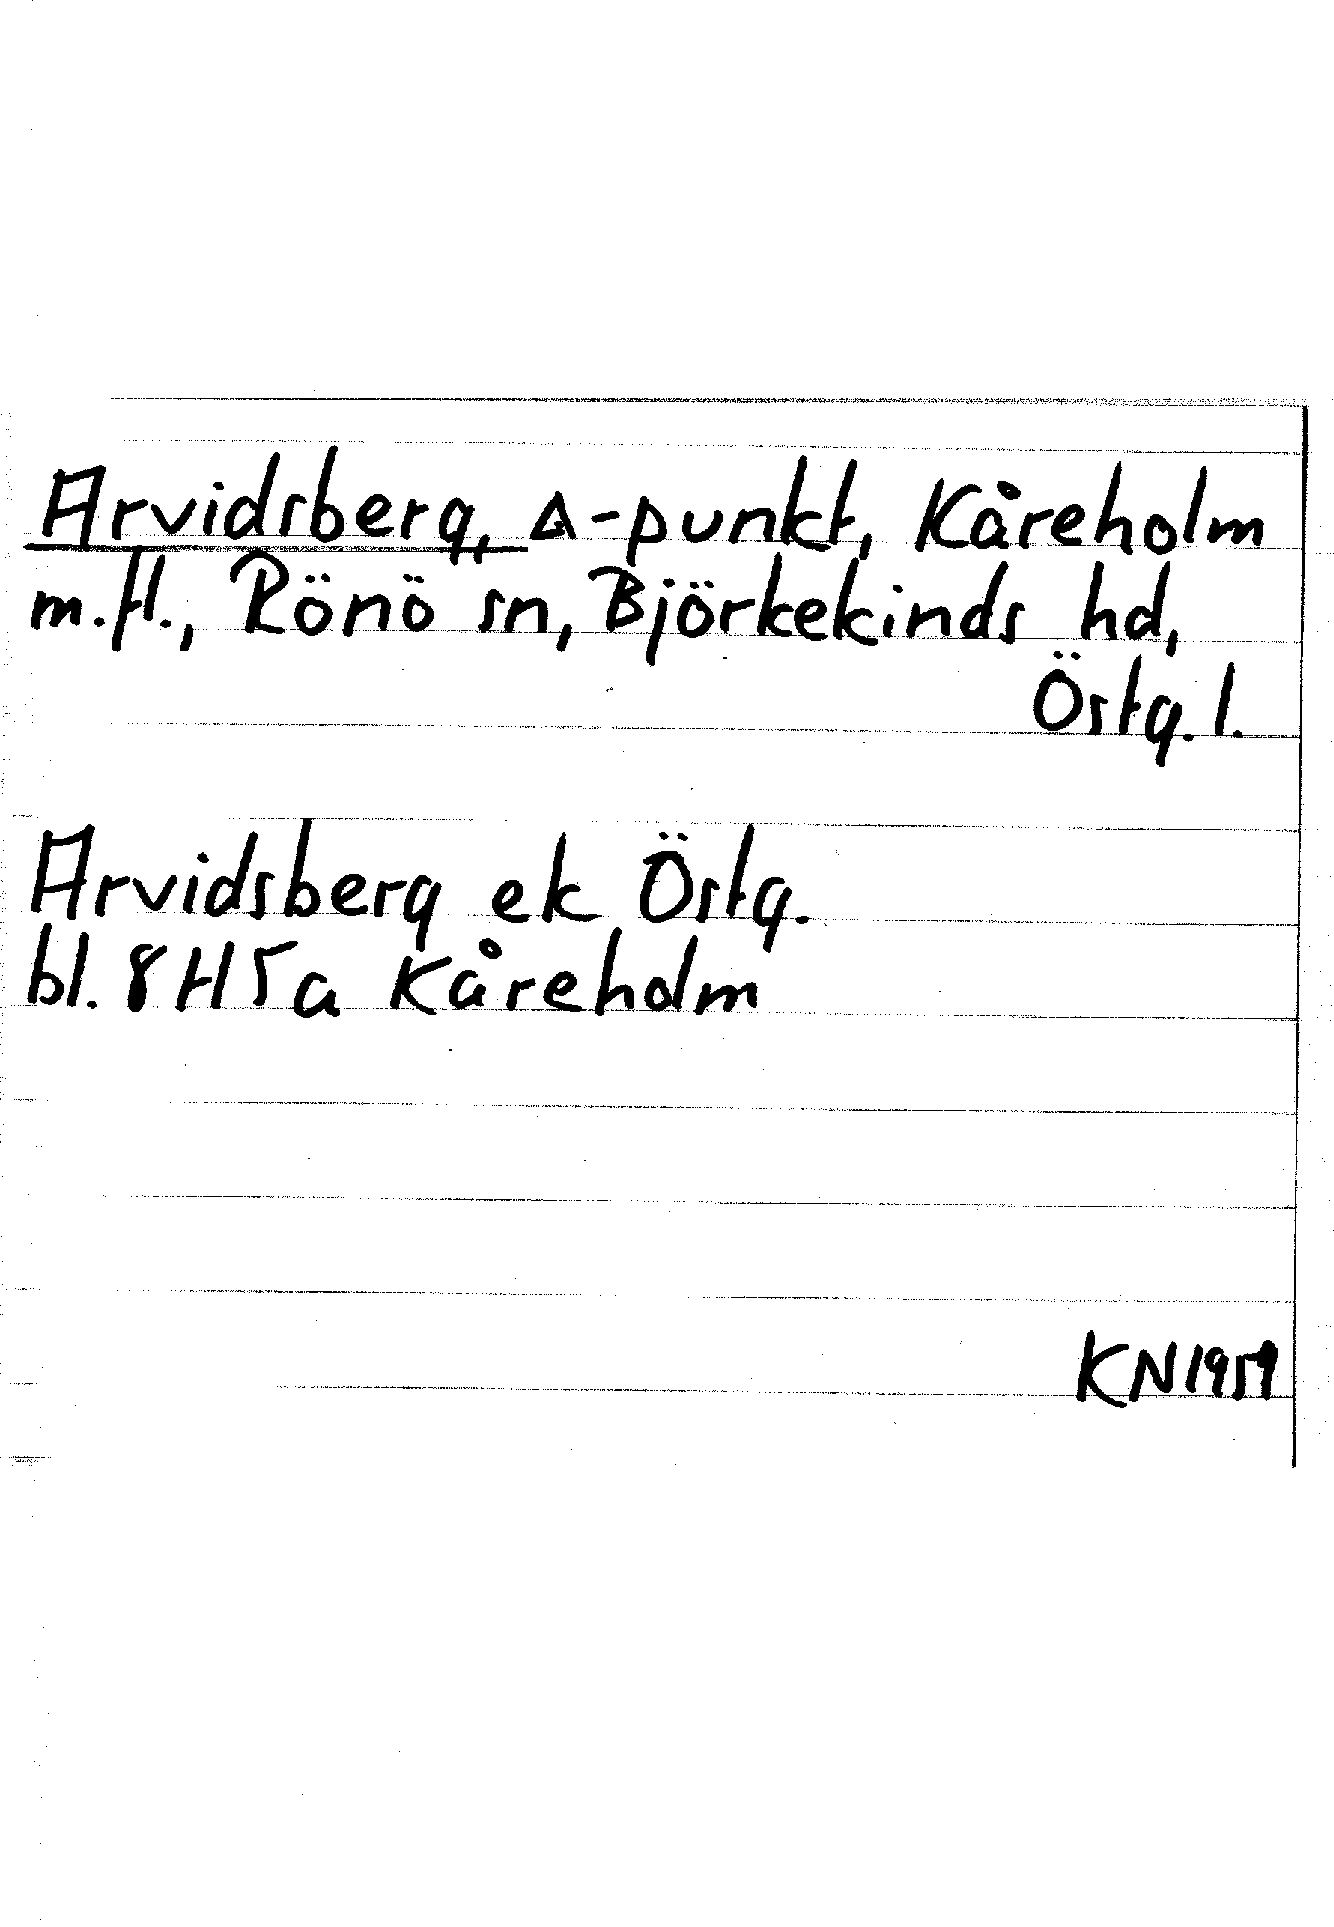 Arvidsberg, Δ-punkt, Kåreholm
m.fl., Rönö sn, Björkekinds hd,
Östg. l.
Arvidsberg ek Östg.
bl. 8H5a Kåreholm
KN1959